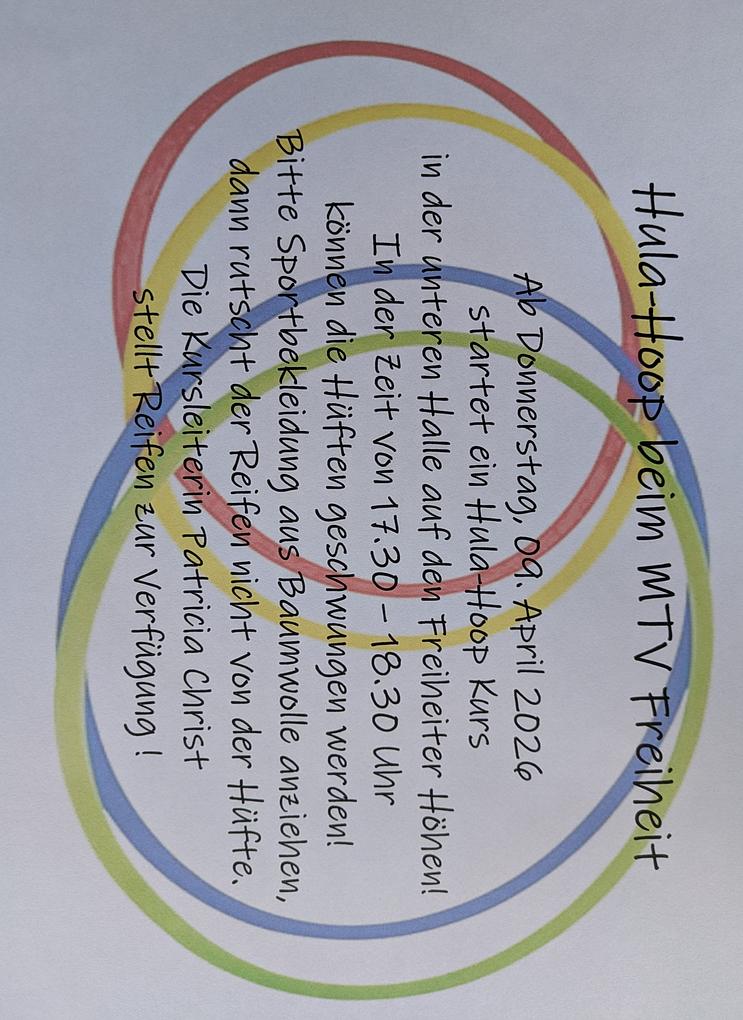 Hula-Hoop beim MTV Freiheit
Ab Donnerstag, 09. April 2026
startet ein Hula-Hoop Kurs
in der unteren Halle auf den Freiheiter Höhen!
In der Zeit von 17.30 – 18.30 Uhr
können die Hüften geschwungen werden!
Bitte Sportbekleidung aus Baumwolle anziehen,
dann rutscht der Reifen nicht von der Hüfte.
Die Kursleiterin Patricia Christ
stellt Reifen zur Verfügung!